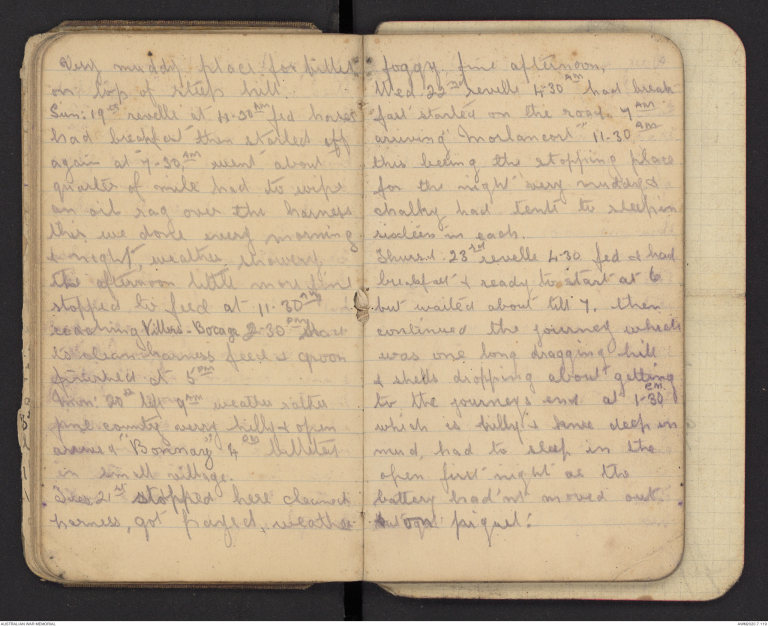 Very muddy place for billet
on top of steep hill.
Sun: 19th revelle at 4-30 AM fed horses
had breakfast then started off
again at 7-30 AM went about
quarter of mile had to wipe
an oil rag over the harness
this we done every morning
& night, weather, showery
the afternoon little more fine
stopped to feed at 11.30 AM
reaching Villers-Bocage 2-30 PM had
to clean harness feed & groom
finished at 5 PM
Mon: 20th left 9 AM weather rather
fine county verry hilly & open
arrived "Bonnay" 4 PM billeted
in small village.
Tues 21st stopped here cleaned
harness, got payed, weather
foggy fine afternoon.
Wed 22nd revelle 4-30 AM had break
fast started on the road 7 AM
arriving "Morlancort" 11.30 AM
this being the stopping place
for the night very muddy &
chalky had tents to sleep in
sixteen in each.
Thurs: 23rd revelle 4-30 fed & had
breakfast & ready to start at 6
but waited about till 7, then
continued the journey which
was one long dragging hill
& shells dropping about getting
to the journeys end at 1-30 P.M.
which is hilly & knee deep in
mud, had to sleep in the
open first night as the
battery had'nt moved out
on piquet.
AUSTRALIAN WAR MEMORIAL